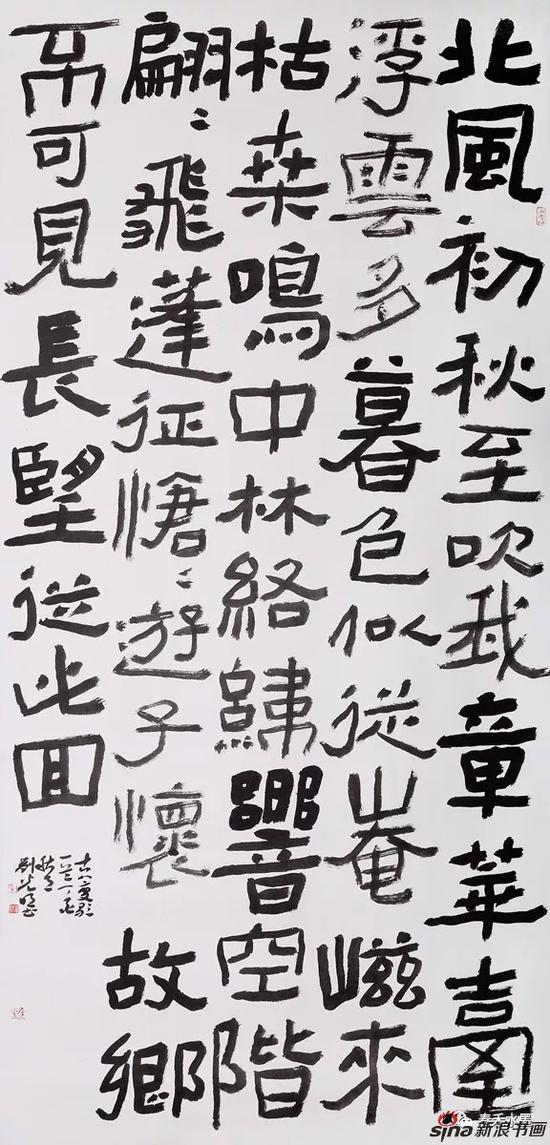 北風初秋至吹我章華臺
浮雲多暮色似從崦嵫來
枯桒鳴中林絡緯響空階
翩〻飛蓬征愴〻遊子懷故鄉
不可見長望從此回
古八變歌
sina新浪书画